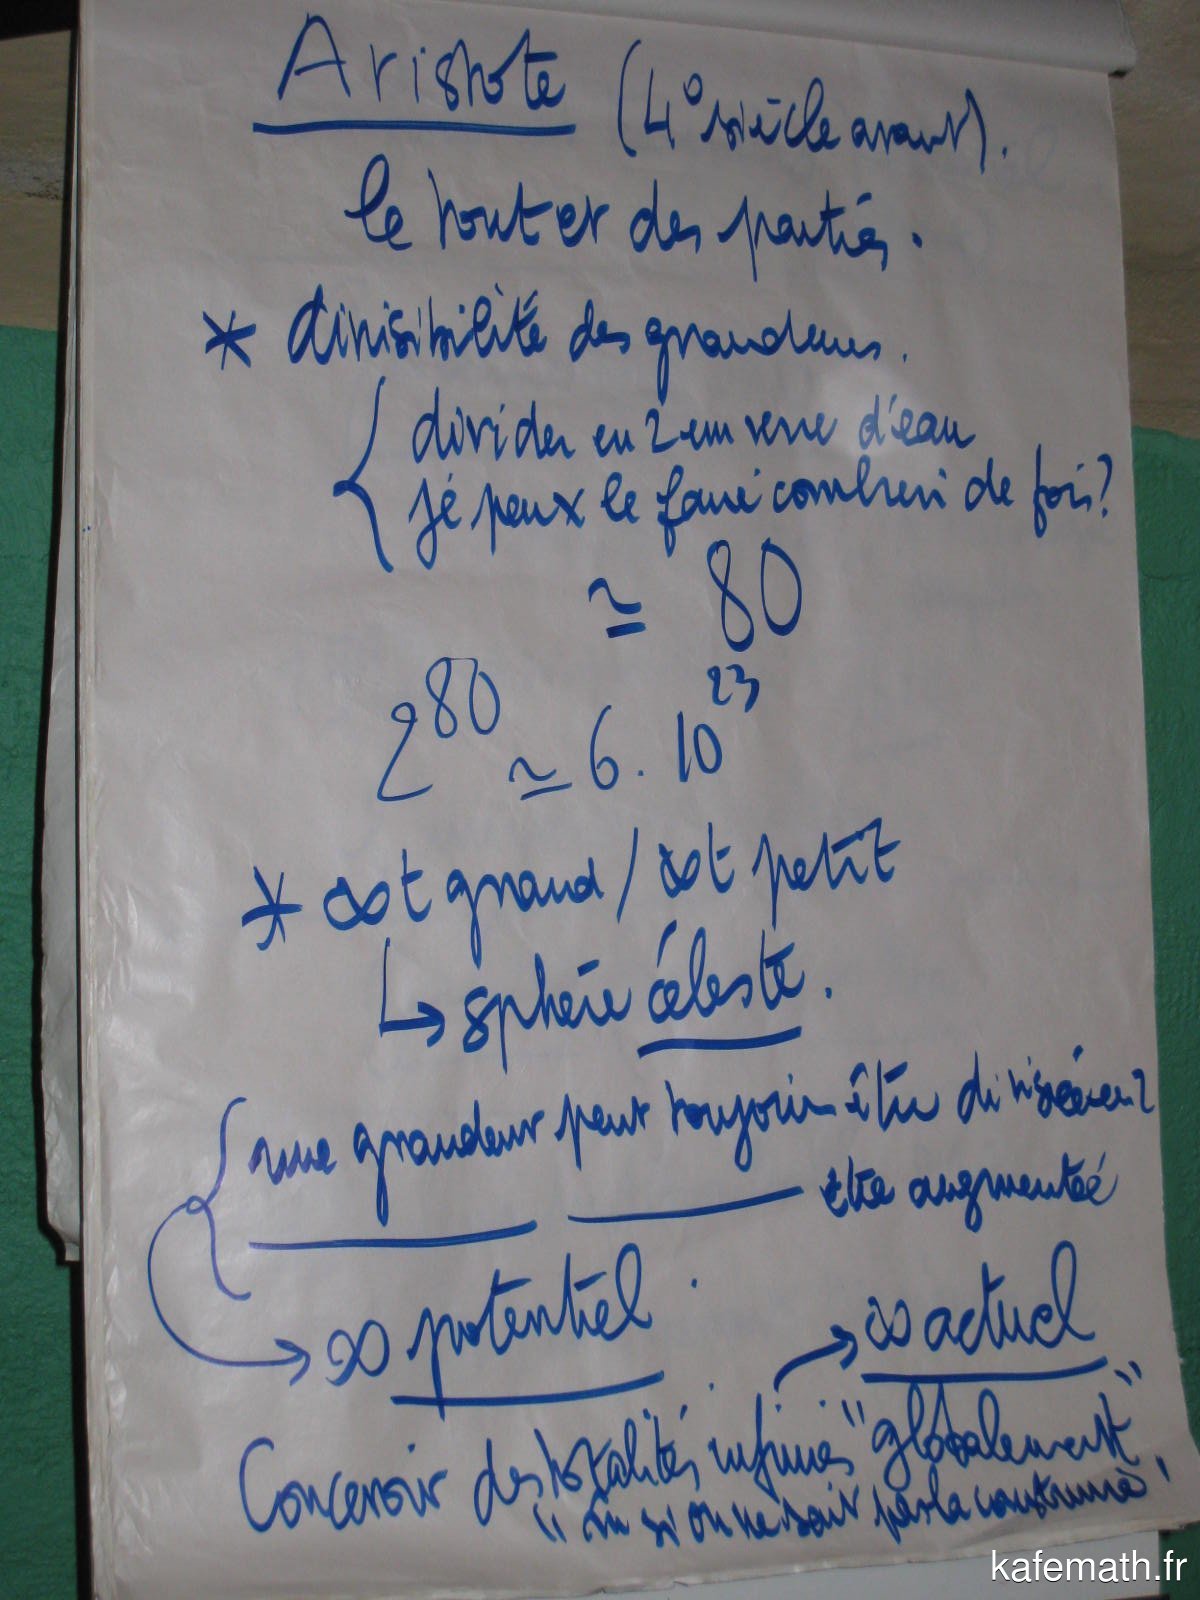 Aristote (4° siècle avant).
le tout et des parties.
* divisibilité des grandeurs.
divider en 2 un verre d'eau
je peux le faire combien de fois?
≃ 80
2^80 ≃ 6. 10^23
* ∞t grand / ∞t petit
↳ sphère céleste.
une grandeur peut toujours être divisée en 2
être augmentée
→ ∞ potentiel. → ∞ actuel
Concevoir des totalités infinies "globalement"
si on ne sait pas la construire"
kafemath.fr